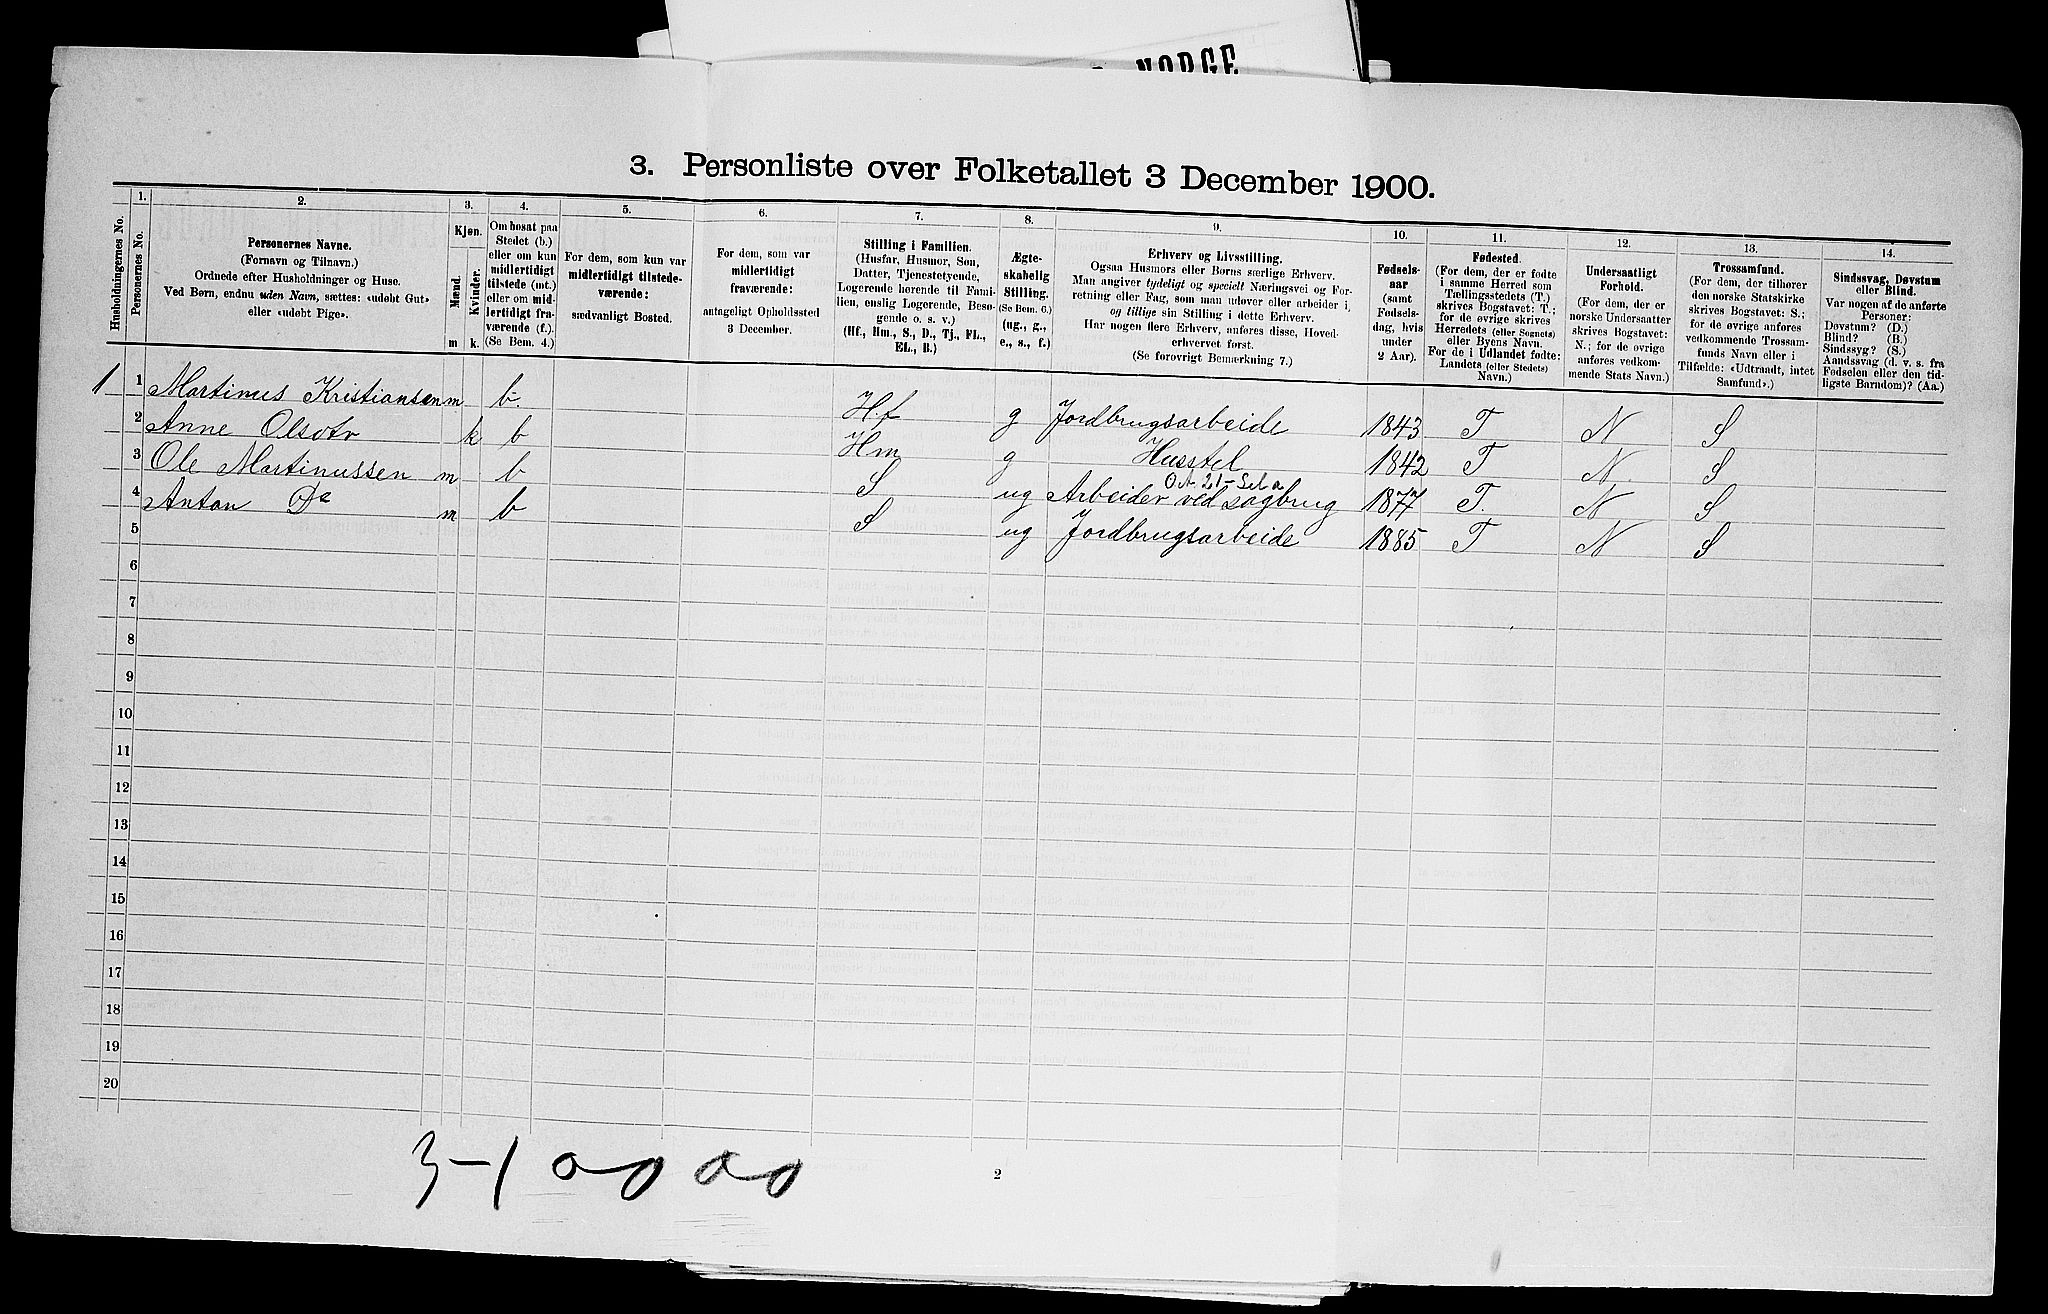 NORGE
3. Personliste over Folketallet 3 December 1900.
Husholdningernes No.
1.
Personernes No.
2.
Personernes Navne.
(Fornavn og Tilnavn.)
Ordnede efter Husholdninger og Huse.
Ved Børn, endnu uden Navn, sættes: «udøbt Gut»
eller «udøbt Pige».
3.
Kjøn.
Mænd.
Kvinder.
m k.
4.
Om bosat paa
Stedet (b.)
eller om kun
midlertidigt
tilstede (mt.)
eller om mid-
lertidigt fra-
værende (f.).
(Se Bem. 4.)
5.
For dem, som kun var
midlertidigt tilstede-
værende:
sædvanligt Bosted.
6.
For dem, som var
midlertidigt
fraværende:
antageligt Opholdssted
3 December.
7.
Stilling i Familien.
(Husfar, Husmor, Søn,
Datter, Tjenestetyende,
Logerende hørende til Fami-
lien, enslig Logerende, Besø-
gende o. s. v.)
(Hf., Hm., S., D., Tj., FL.,
EL., B.)
8.
Ægte-
skabelig
Stilling.
(Se Bem. 6.)
(ug., g.,
e., s., f.)
9.
Erhverv og Livsstilling.
Ogsaa Husmors eller Børns særlige Erhverv.
Man angiver tydeligt og specielt Næringsvei og For-
retning eller Fag, som man udøver eller arbeider i,
og tillige sin Stilling i dette Erhverv.
Har nogen flere Erhverv, anføres disse, Hoved-
erhvervet først.
(Se forøvrigt Bemærkning 7.)
10.
Fødsels-
aar
(samt
Fødsels-
dag, hvis
under
2 Aar).
11.
Fødested.
(For dem, der er fødte
i samme Herred som
Tællingsstedets (T.)
skrives Bogstavet: T.;
for de øvrige skrives
Herredets (eller Sognets)
eller Byens Navn.
For de i Udlandet fødte:
Landets (eller Stedets)
Navn.)
12.
Undersaatligt
Forhold.
(For dem, der er
norske Undersaatter
skrives Bogstavet:
N.; for de øvrige
anføres vedkom-
mende Stats Navn.)
13.
Trossamfund.
(For dem, der tilhører
den norske Statskirke
skrives Bogstavet: S.;
for de øvrige anføres
vedkommende Trossam-
funds Navn eller i
Tilfælde: «Udtraadt, intet
Samfund».)
14.
Sindssvag, Døvstum
eller Blind.
Var nogen af de anførte
Personer:
Døvstum? (D.)
Blind? (B.)
Sindssyg? (S.)
Aandssvag (d. v. s. fra
Fødselen eller den tid-
ligste Barndom)? (Aa.)
1 1 Martinus Kristiansen m b. H.f g Jordbrugsarbeide 1843 T N S
2 Anne Olsdtr k b Hm g Husstel 1842 T N. S
3 Ole Martinussen m b S ug Arbeider ved sagbrug 1877 T. N S
4 Anton Do m b S ug Jordbrugsarbeide 1885 T N S
5
6
7
8
9
10
11
12
13
14
15
16
17
18
19
20
3-1 0 0 0 0
2